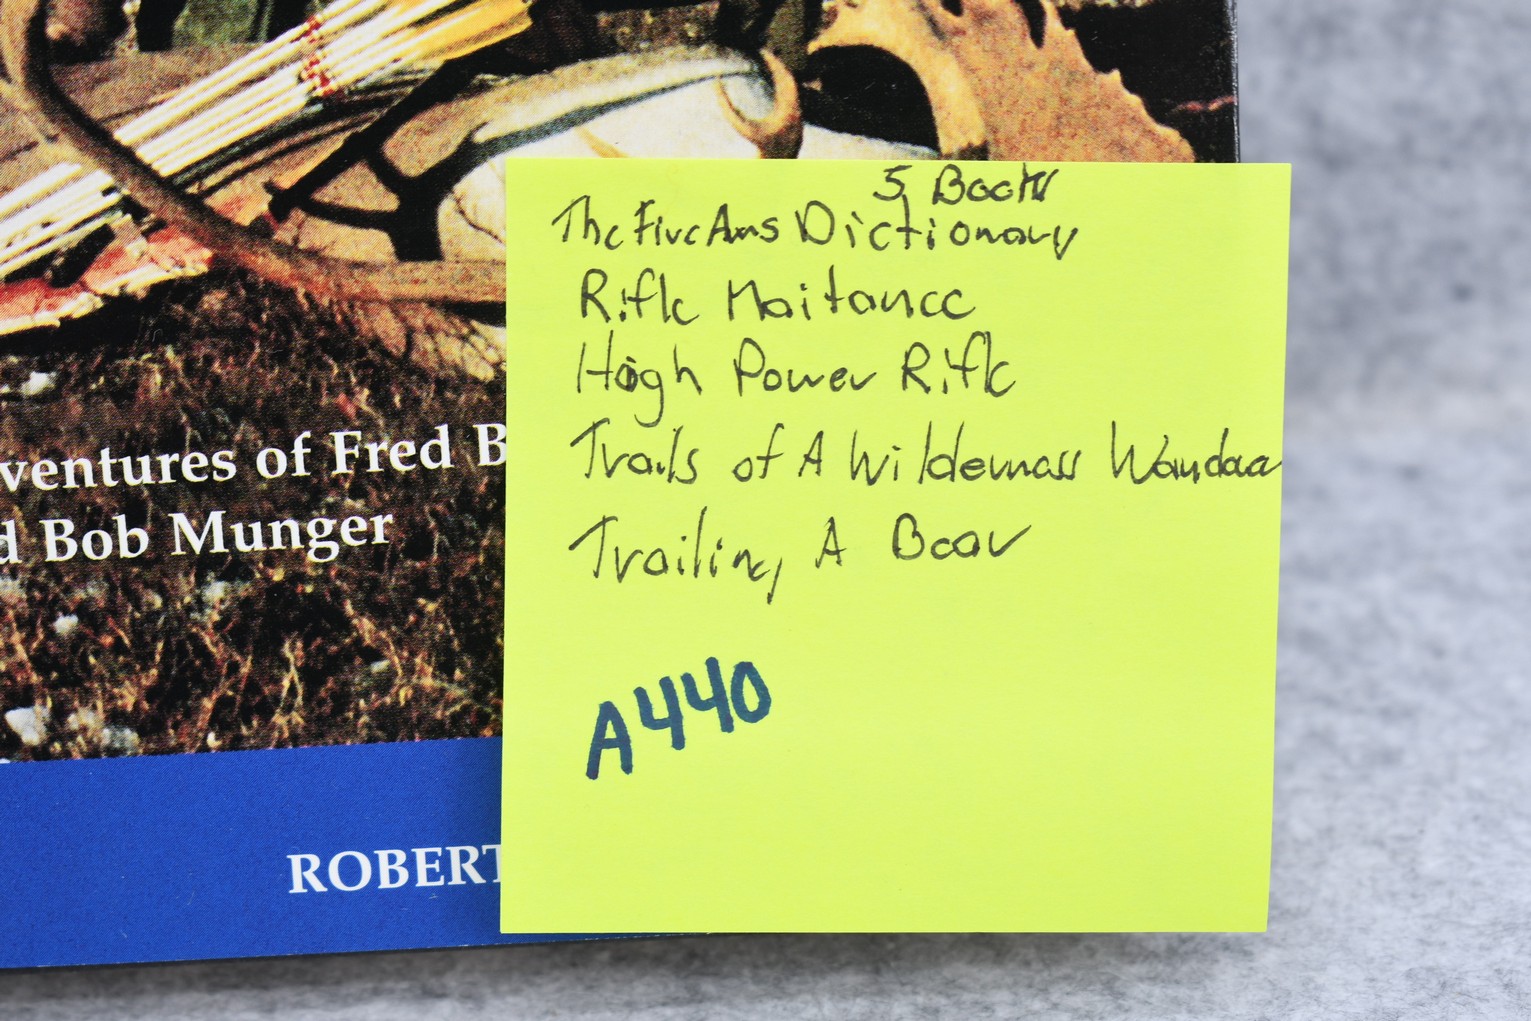 ventures of Fred B
d Bob Munger
ROBERT
5 Books
The Five Ams Dictionary
Rifle Maitance
High Power Rifle
Trails of A Wilderness Wandaa
Trailing A Bear
A440